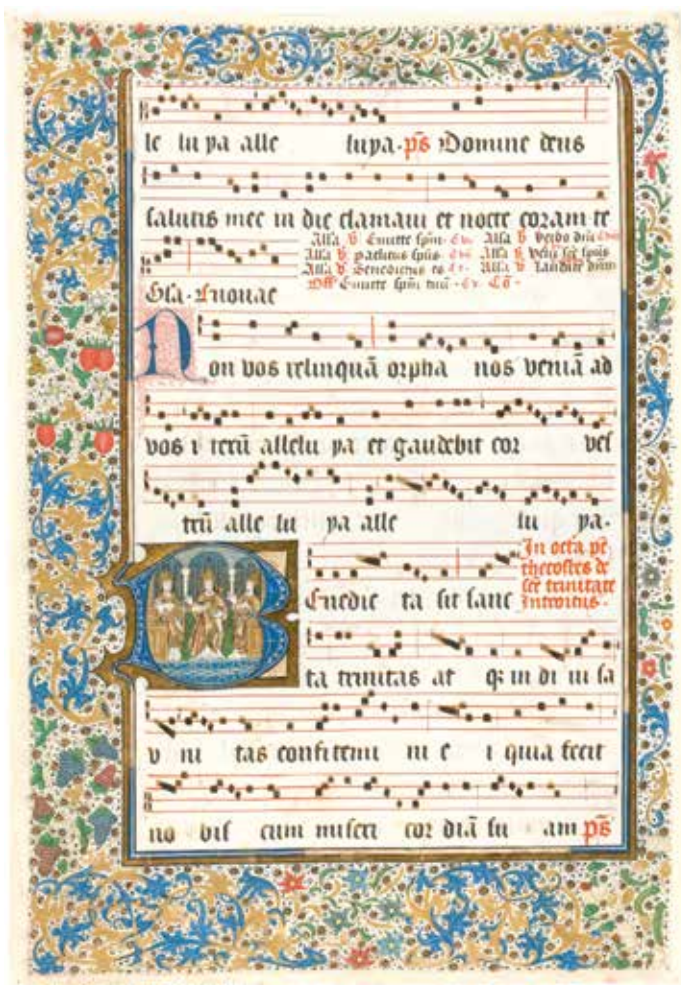 le lu ya alle luya. p̄s Domine deus
salutis mee in die clamaui et nocte coram te
Alla v̄ Emitte sp̄m Alla v̄
Alla v̄ paclitus sp̄us Alla v̄ Veni sc̄e sp̄us
Alla v̄ Benedictus es Alla v̄ Laudate
Off Emitte sp̄m tuū Cō
Gla. Euouae
Non vos relinquā orpha nos veniā ad
vos i terū allelu ya et gaudebit cor ves
trū alle lu ya alle lu ya.
In octa pē
thecostes de
sc̄e trinitate
Introitus.
Benedic ta sit sanc
ta trinitas at q̄ in di ui sa
v ni tas confitemi ni e i quia fecit
no bis cum miseri cor diā su am p̄s